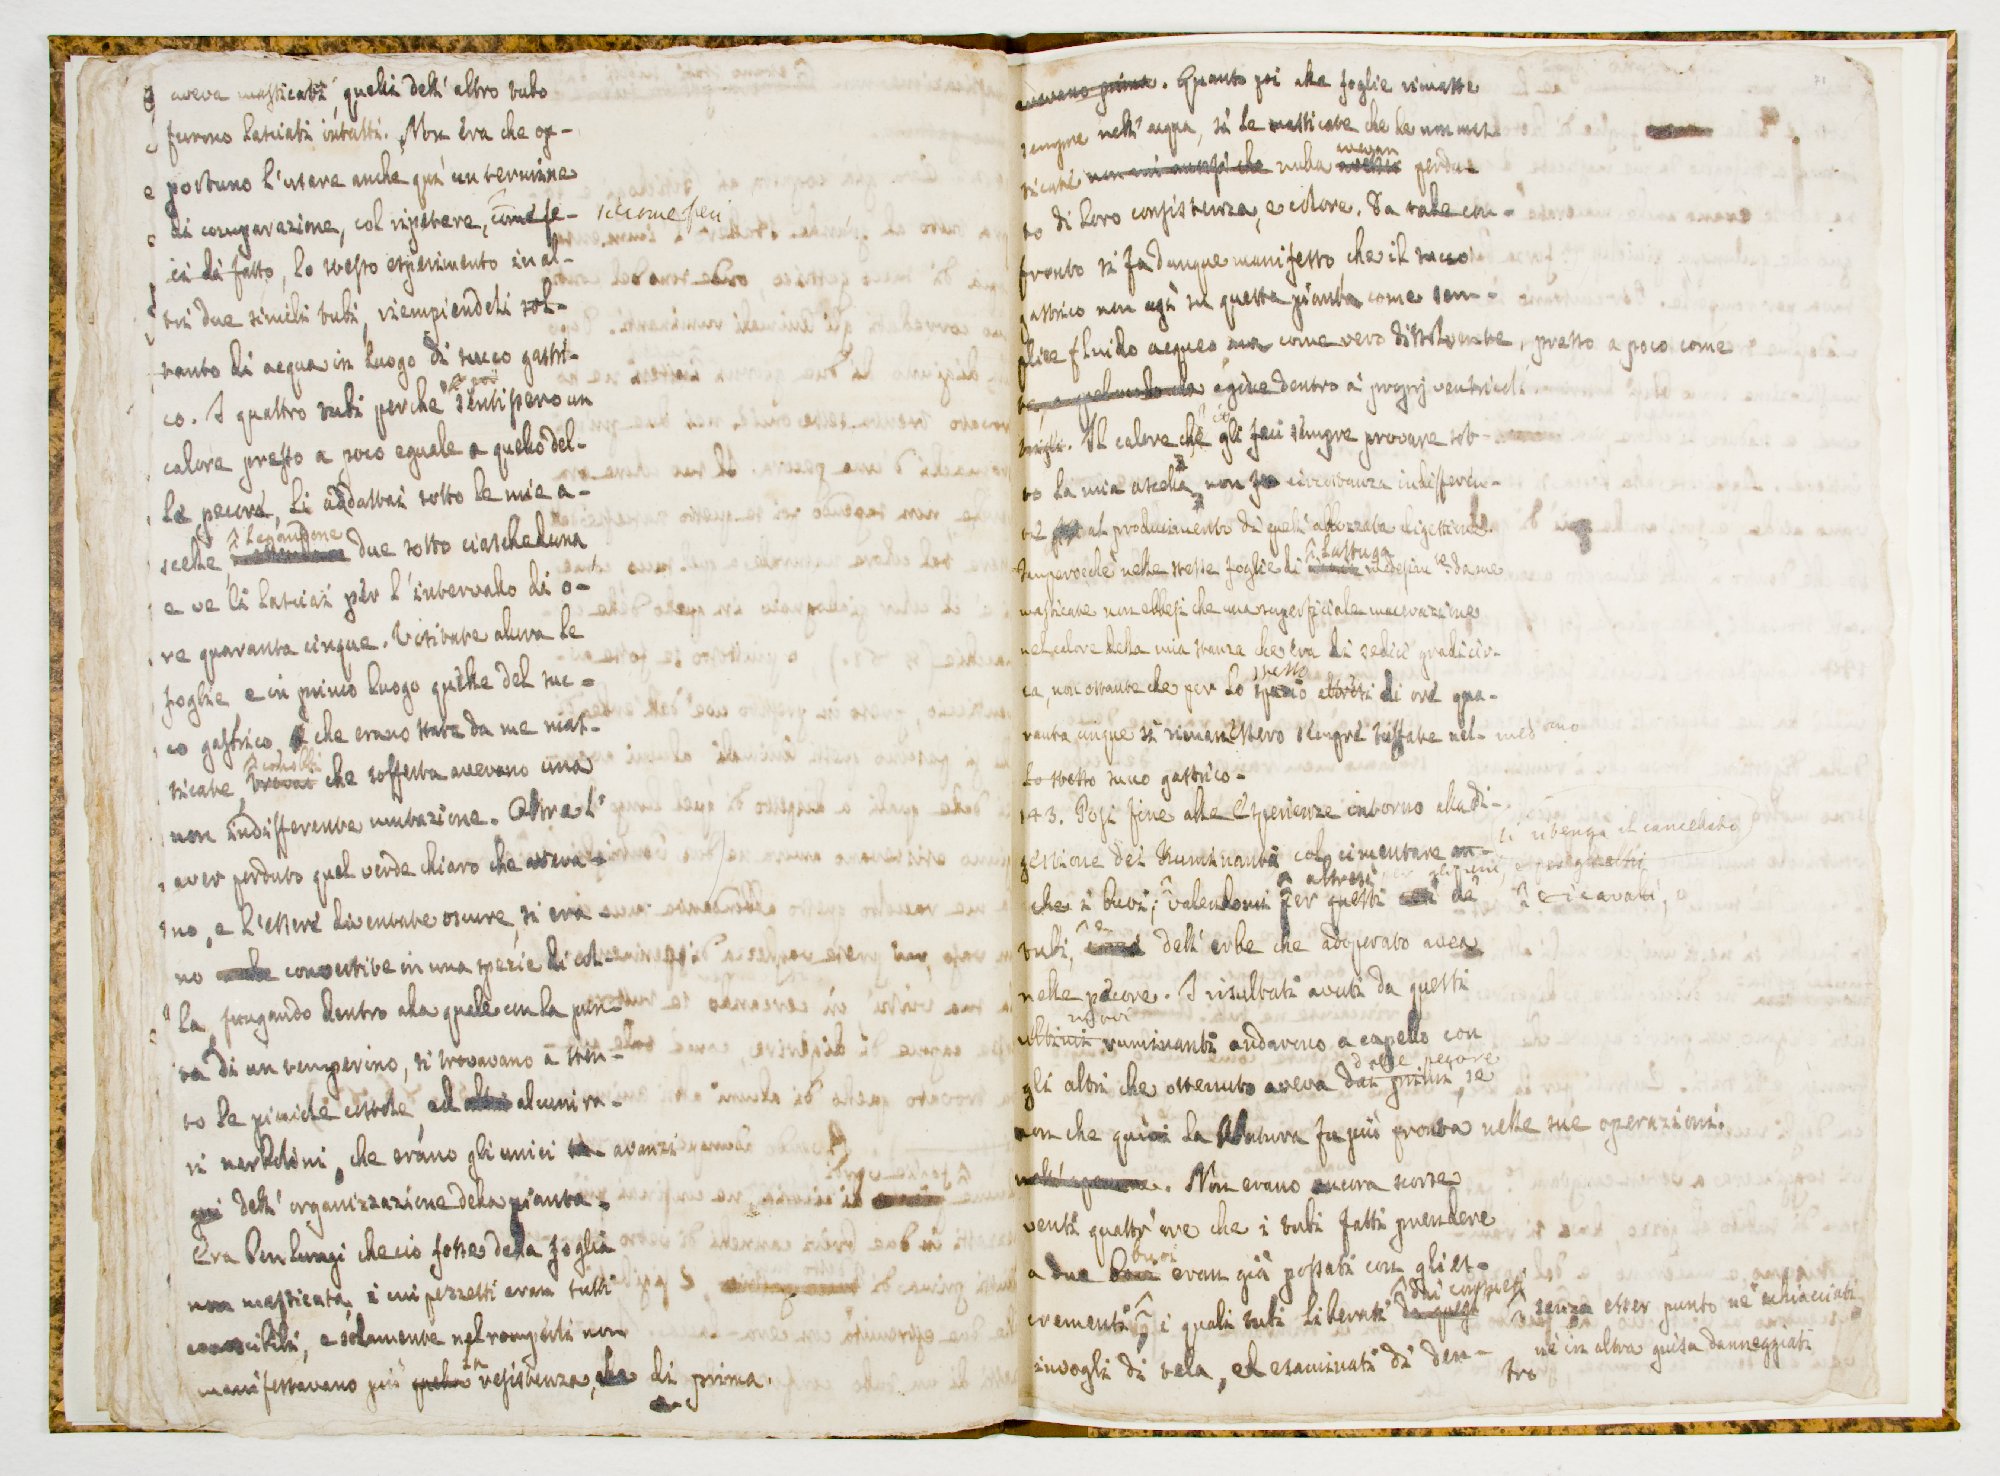 aveva masticati, quelli dell' altro tubo
furono lasciati intatti. Non era che op-
portuno l'usare anche quì un termine
di comparazione, col ripetere, come fe- siccome feci
ci di fatto, lo stesto esperimento in al-
tri due simili tubi, riempiendoli sol-
tanto di acqua in luogo di succo gastri-
co. I quattro tubi perchè sentissero un
calore presso a poco eguale a quello del-
le pecore, li addattai sotto le mie a-
scelle, legandone due sotto ciascheduna
e ve li lasciai per l'intervallo di o-
re quaranta cinque. Visitate allora le
foglie e in primo luogo quelle del suc-
co gastrico, che erano state da me mas-
ticate, che sofferta avevano una
non indifferente mutazione. Oltre l'
aver perduto quel verde chiaro che aveva-
no, e l'essere diventate oscure, si era-
no convertite in una spezie di col-
la, frugando dentro alla quale con la pun-
ta di un temperino, si trovavano a sten-
to le picciole costole, ed alcuni ra-
ri nerbolini, che erano gli unici avanzi
dell' organizzazione della pianta.
Era ben lungi che ciò fosse della foglia
non masticata, i cui pezzetti eran tutti
, e solamente nel romperli non
manifestavano più resistenza, di prima.
avevano prima. Quanto poi alle foglie rimaste
sempre nell' acqua, sì le masticate che le non mas-
ticate non mi accorsi che nulla avean perdu-
to di loro consistenza, e colore. Da tale con-
fronto si fa dunque manifesto, che il succo
gastrico non agì su queste piante come sem-
plice fluido acqueo, ma come vero dissolvente, presso a poco come
agisce dentro ai proprj ventricoli
Il calore che gli feci sempre provare sot-
to la mia ascella, non fu circostanza indifferen-
te al producimento di quell' abbozzata digestione.
Imperocchè nelle stesse foglie di lattuga medesimamente da me
masticate non ebbesi che una superficiale macerazione
nel calore della mia stanza che era di sedici gradi cir-
ca, non ostante che per lo stesso spazio di ore qua-
ranta cinque si rimanessero sempre tuffate nel- medesimo
lo stesso succo gastrico.
143. Posi fine alle esperienze intorno alla di-
gestione dei Ruminanti col cimentare an- si ritenga il cancellato
che i buoi, valendomi altresì per questi de' e ricavati,
tubi, e dell' erbe che adoperato avea
nelle pecore. I risultati avuti da questi
ultimi nuovi ruminanti andavano a capello con
gli altri che ottenuto aveva dai primi, delle pecore se
non che quivi la Natura fu più pronta nelle sue operazioni.
Non erano ancora scorse
venti quattr' ore che i tubi fatti prendere
a due buoi eran già passati con gli es-
crementi, i quali tubi liberati dai consueti senza esser punto nè schiacciati
invogli di tela, ed esaminati di den- nè in altra guisa danneggiati
tro